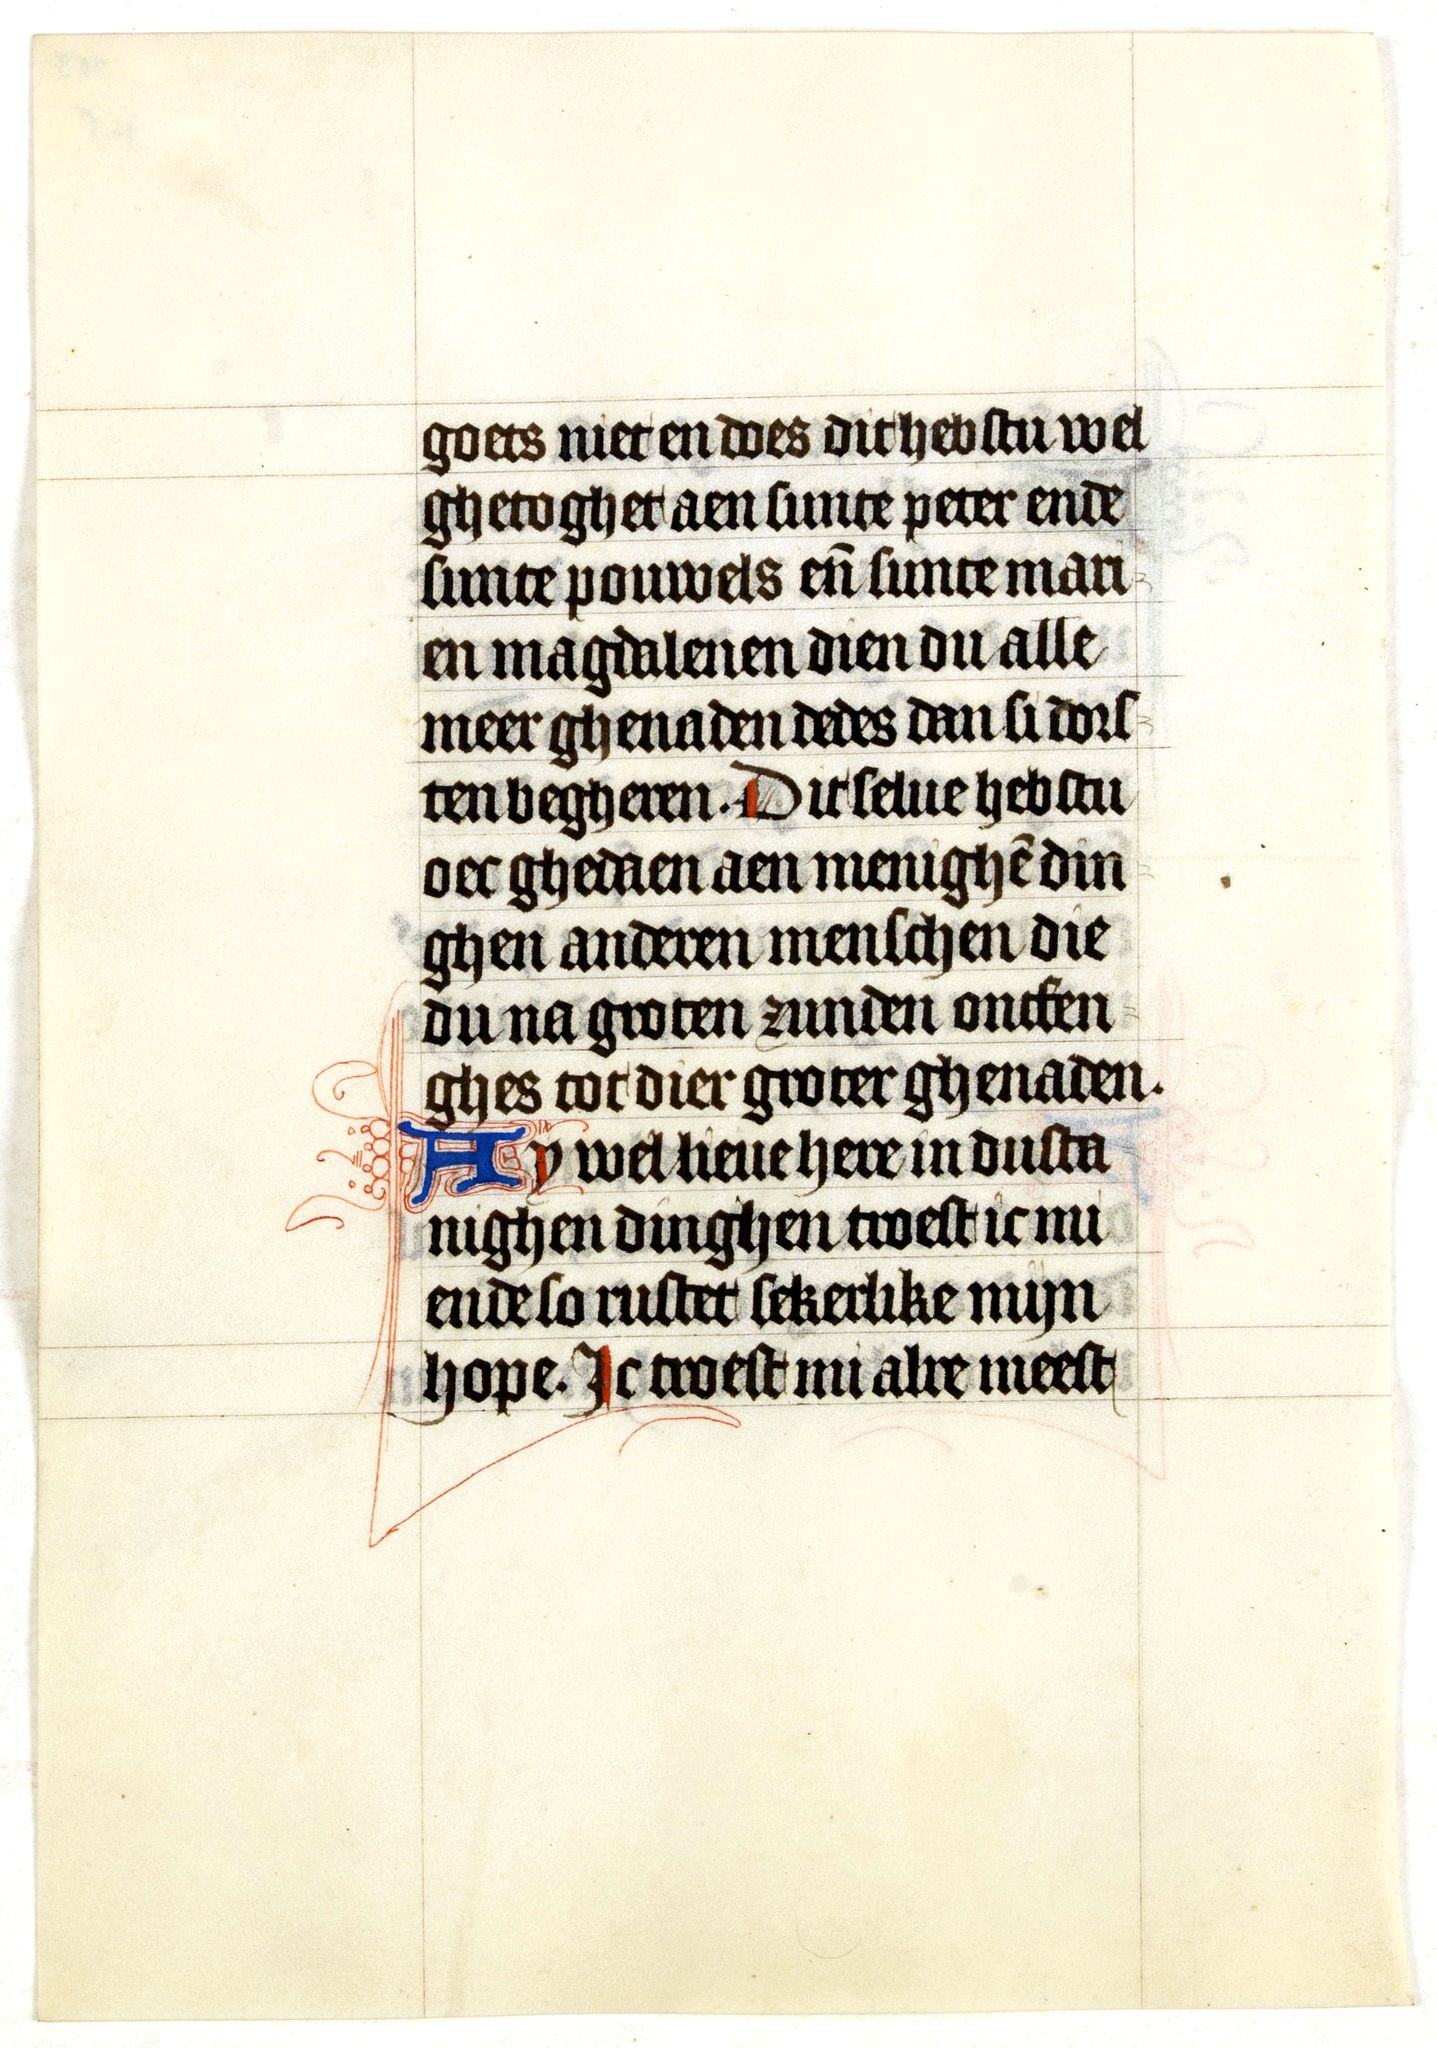 goets niet en does dit hebstu wel
ghetoghet aen sunte peter ende
sunte pouwels eñ sunte mari-
en magdalenen dien du alle
meer ghenaden dedes dan si dors-
ten begheren. Dit selue hebstu
oec ghedaen aen menighē din-
ghen anderen menschen die
du na groten zunden ontfen-
ghes tot dier groter ghenaden.
Ay wel lieue here in dusta-
nighen dinghen troest ic mi
ende so rustet sekerlike mijn
hope. Ic troest mi alre meest